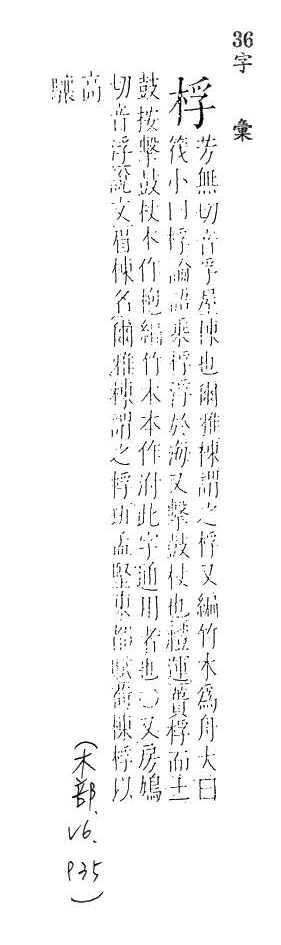 36字 彙
桴 芳無切音孚屋棟也爾雅棟謂之桴又編竹木爲舟大曰
筏小曰桴論語乘桴浮於海又擊鼓杖也禮運蕢桴而土
鼓按擊鼓杖本作枹編竹木本作泭此字通用者也〇又房鳩
切音浮說文眉棟名爾雅棟謂之桴班孟堅東都賦荷棟桴以
高
驤
(木部、V6、P35)